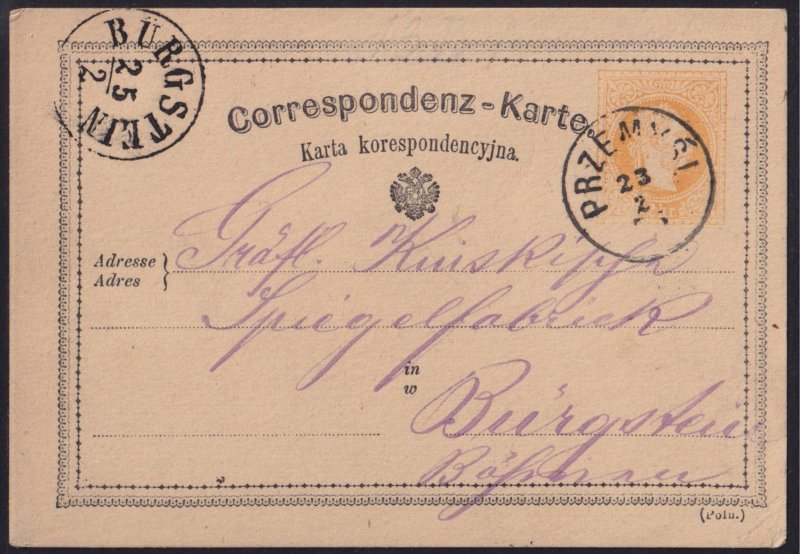 BÜRGSTEIN
25
2
Correspondenz-Karte.
Karta korespondencyjna.
PRZEMYŚL
23
2
Adresse
Adres
Gräfl. Kinskÿsche
Spiegelfabrick
in
w
Bürgstein
Böhmen
(Poln.)